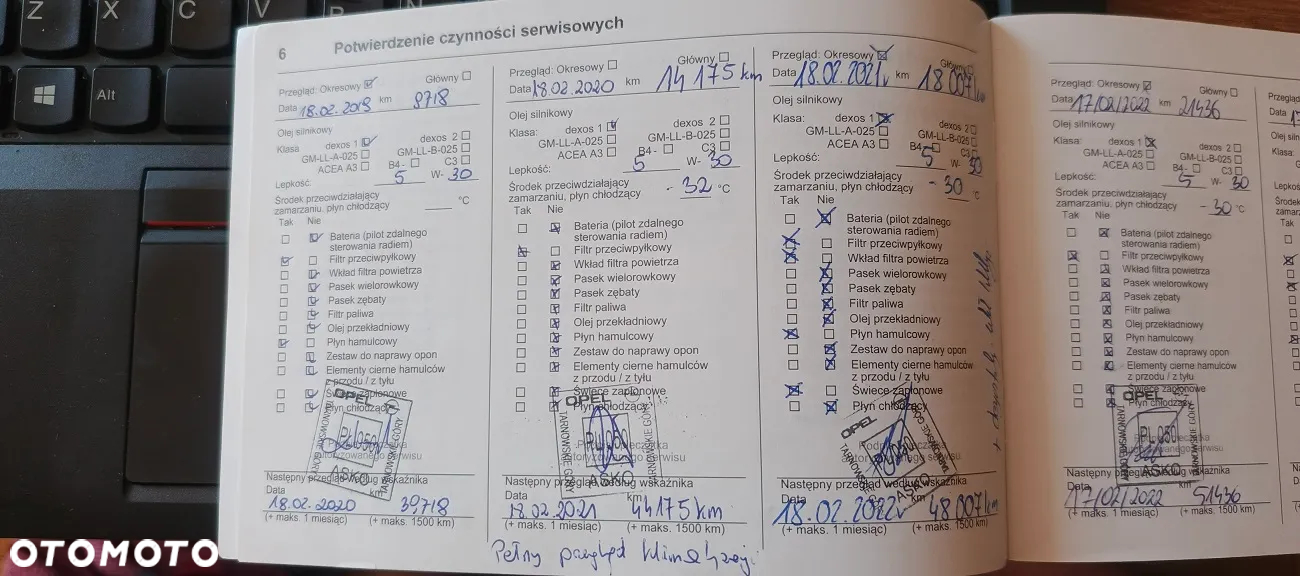 Z X C V
Alt
6 Potwierdzenie czynności serwisowych
Przegląd: Okresowy Główny
Data 18.02.2019 km 9718
Olej silnikowy
Klasa dexos 1 dexos 2
GM-LL-A-025 GM-LL-B-025
ACEA A3 B4- C3
Lepkość: 5 W- 30
Środek przeciwdziałający
zamarzaniu, płyn chłodzący °C
Tak Nie
Bateria (pilot zdalnego
sterowania radiem)
Filtr przeciwpyłkowy
Wkład filtra powietrza
Pasek wielorowkowy
Pasek zębaty
Filtr paliwa
Olej przekładniowy
Płyn hamulcowy
Zestaw do naprawy opon
Elementy cierne hamulców
z przodu / z tyłu
Świece zapłonowe
Płyn chłodzący
OPEL
PL 050
TARNOWSKIE GÓRY
ASKO
Następny przegląd według wskaźnika
Data km
18.02.2020 39718
(+ maks. 1 miesiąc) (+ maks. 1500 km)
Przegląd: Okresowy Główny
Data 18.02.2020 km 14 175 km
Olej silnikowy
Klasa: dexos 1 dexos 2
GM-LL-A-025 GM-LL-B-025
ACEA A3 B4- C3
Lepkość: 5 W- 30
Środek przeciwdziałający
zamarzaniu, płyn chłodzący - 32 °C
Tak Nie
Bateria (pilot zdalnego
sterowania radiem)
Filtr przeciwpyłkowy
Wkład filtra powietrza
Pasek wielorowkowy
Pasek zębaty
Filtr paliwa
Olej przekładniowy
Płyn hamulcowy
Zestaw do naprawy opon
Elementy cierne hamulców
z przodu / z tyłu
Świece zapłonowe
Płyn chłodzący
OPEL
PL 050
TARNOWSKIE GÓRY
ASKO
Następny przegląd według wskaźnika
Data km
18.02.2021 44175 km
(+ maks. 1 miesiąc) (+ maks. 1500 km)
Pełny przegląd
Przegląd: Okresowy Główny
Data 18.02.2021 km 18 007 km
Olej silnikowy
Klasa: dexos 1 dexos 2
GM-LL-A-025 GM-LL-B-025
ACEA A3 B4- C3
Lepkość: 5 W- 30
Środek przeciwdziałający
zamarzaniu, płyn chłodzący - 30 °C
Tak Nie
Bateria (pilot zdalnego
sterowania radiem)
Filtr przeciwpyłkowy
Wkład filtra powietrza
Pasek wielorowkowy
Pasek zębaty
Filtr paliwa
Olej przekładniowy
Płyn hamulcowy
Zestaw do naprawy opon
Elementy cierne hamulców
z przodu / z tyłu
Świece zapłonowe
Płyn chłodzący
OPEL
TARNOWSKIE GÓRY
Następny przegląd według wskaźnika
Data km
18.02.2022 48 007 km
(+ maks. 1 miesiąc) (+ maks. 1500 km)
Przegląd: Okresowy Główny
Data 17/02/2022 km 21436
Olej silnikowy
Klasa: dexos 1 dexos 2
GM-LL-A-025 GM-LL-B-025
ACEA A3 B4- C3
Lepkość: 5 W- 30
Środek przeciwdziałający
zamarzaniu, płyn chłodzący - 30 °C
Tak Nie
Bateria (pilot zdalnego
sterowania radiem)
Filtr przeciwpyłkowy
Wkład filtra powietrza
Pasek wielorowkowy
Pasek zębaty
Filtr paliwa
Olej przekładniowy
Płyn hamulcowy
Zestaw do naprawy opon
Elementy cierne hamulców
z przodu / z tyłu
Świece zapłonowe
Płyn chłodzący
OPEL
PL 050
TARNOWSKIE GÓRY
ASKO
Następny przegląd według wskaźnika
Data km
17/02/2022 51436
(+ maks. 1 miesiąc) (+ maks. 1500 km)
Data
Klasa:
Tak
OTOMOTO